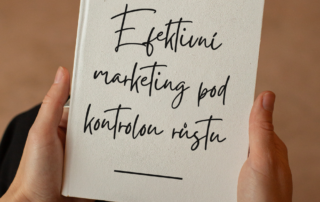 Efektivní
marketing pod
kontrolou růstu